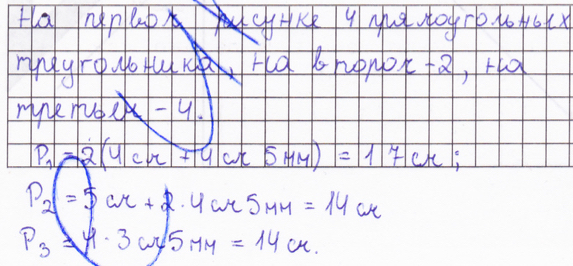 На первом рисунке 4 прямоугольных
треугольника, на втором - 2, на
третьем - 4.
P₁ = 2(4 см + 4 см 5 мм) = 17 см;
P₂ = 5 см + 2 · 4 см 5 мм = 14 см
P₃ = 4 · 3 см 5 мм = 14 см.